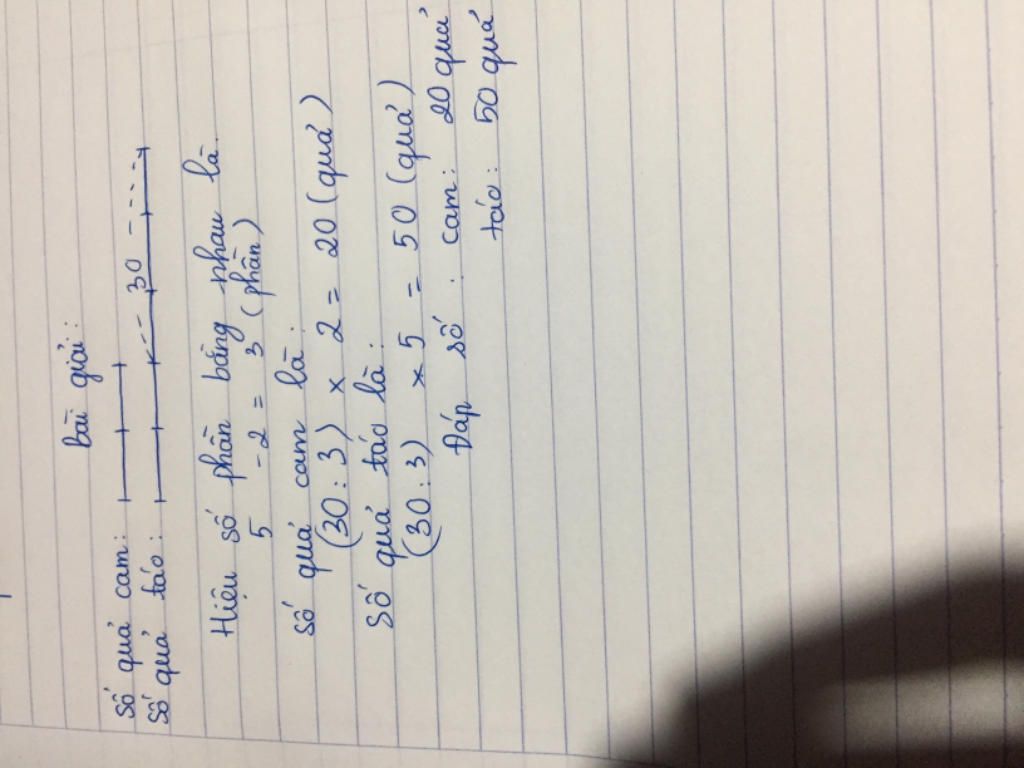 bài giải:
Số quả cam:
Số quả táo: 30
Hiệu số phần bằng nhau là.
5 - 2 = 3 (phần)
Số quả cam là:
(30 : 3) x 2 = 20 (quả)
Số quả táo là:
(30 : 3) x 5 = 50 (quả)
Đáp số : cam: 20 quả
táo: 50 quả